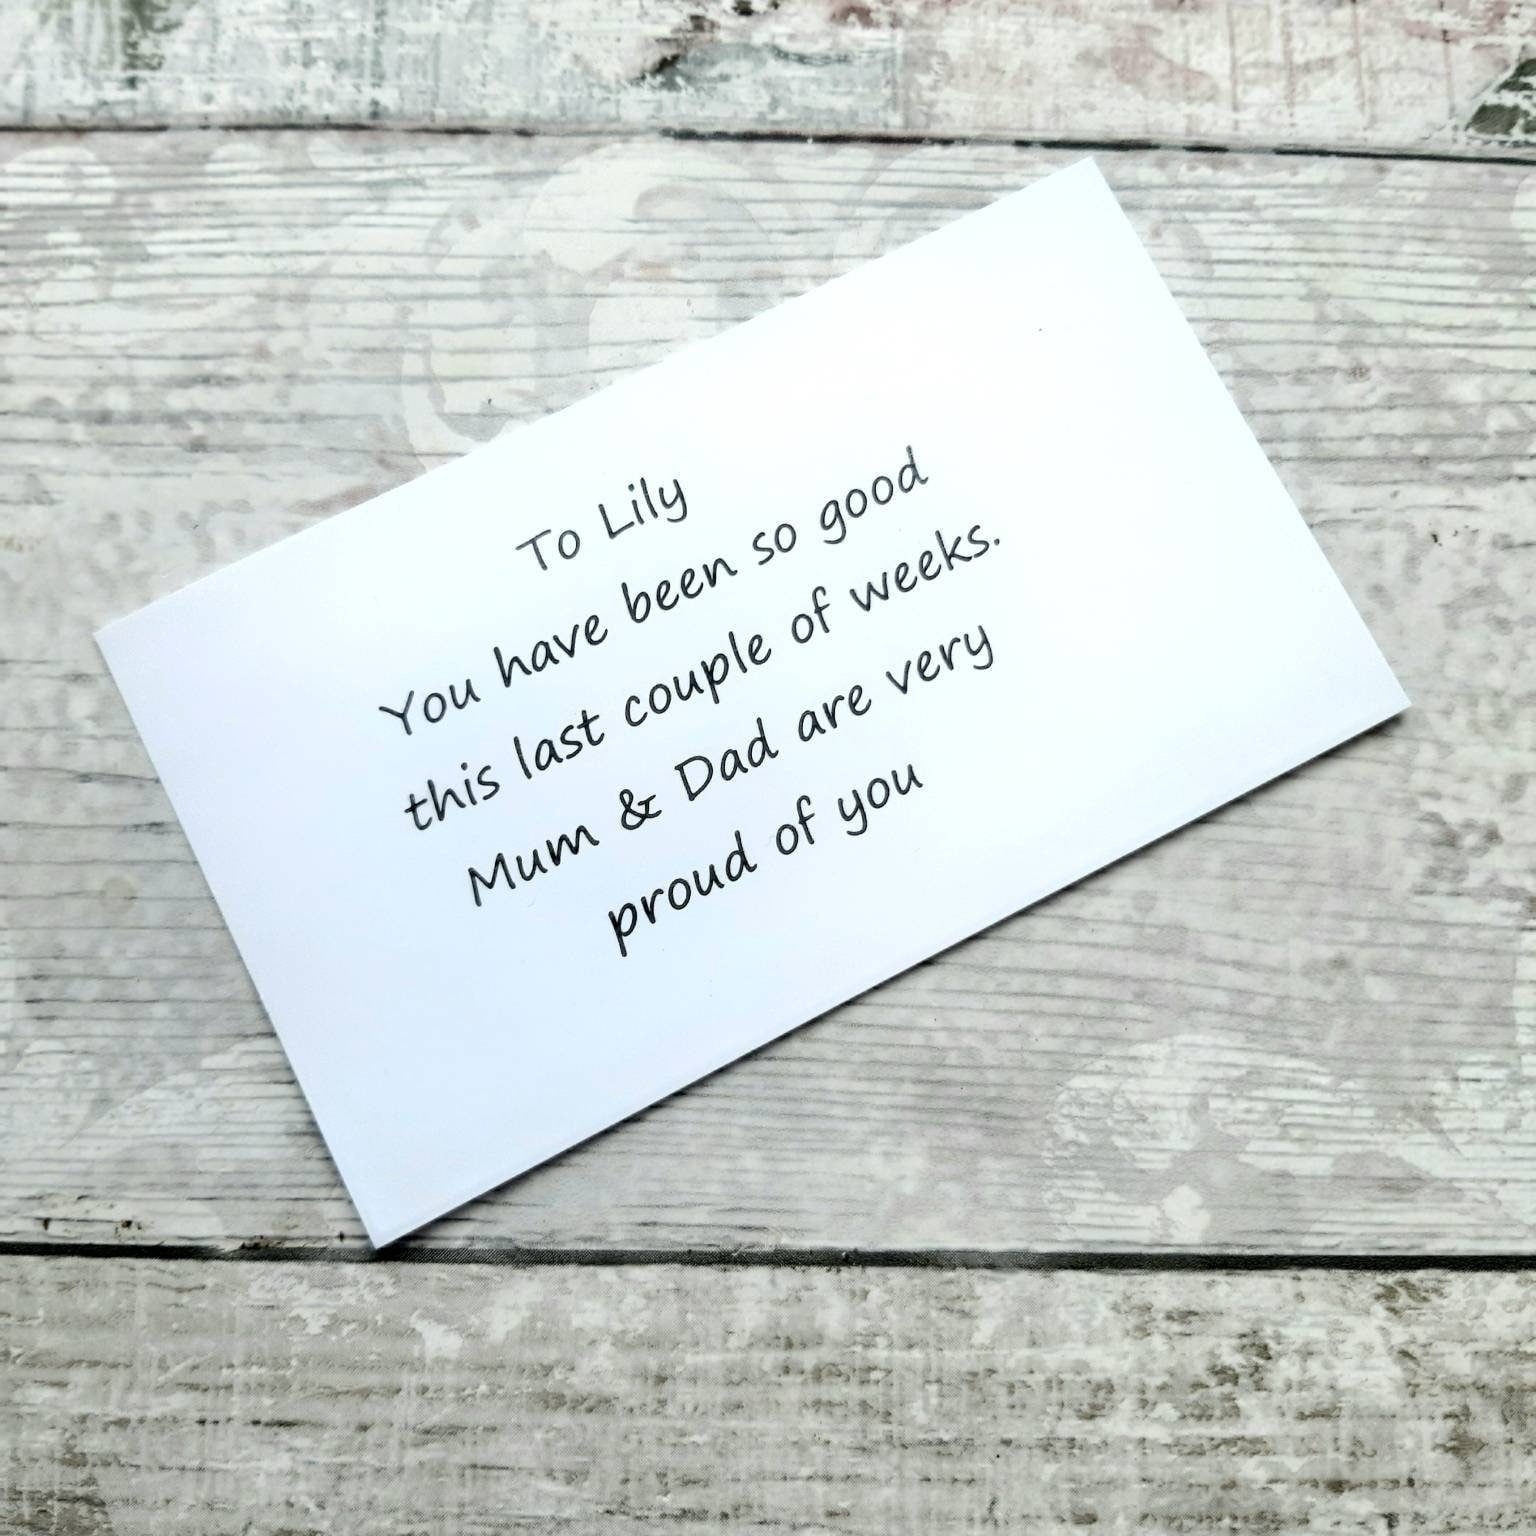 To Lily
You have been so good
this last couple of weeks.
Mum & Dad are very
proud of you